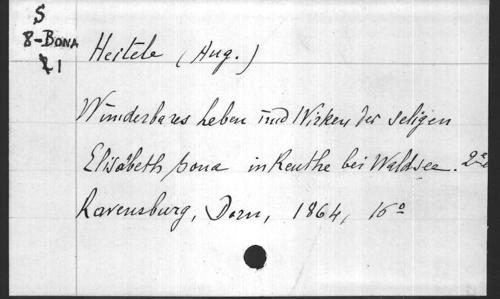 S
8-BONA
21
Heitele (Aug.)
Wunderbares Leben und Wirken der seligen
Elisabeth bona in Reuthe bei Waldsee. 2e
Ravensburg, Dorn, 1864, 16°